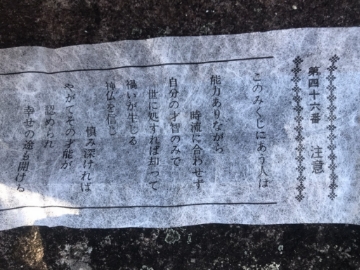 第四十六番 注意
このみくじにあう人は
能力ありながら
時流に合わせず
自分の才智のみで
世に処すれば却つて
禍いが生じる
神仏を信じ
慎み深ければ
やがてその才能が
認められ
幸せの途も開けら